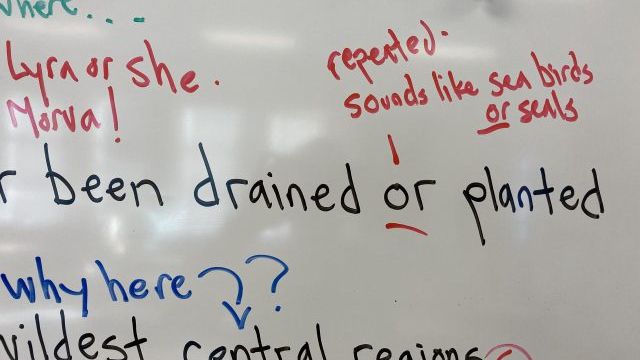 where...
Lyra or she.
Morva!
repeated.
sounds like sea birds
or seals
r been drained or planted
why here ??
wildest central regions